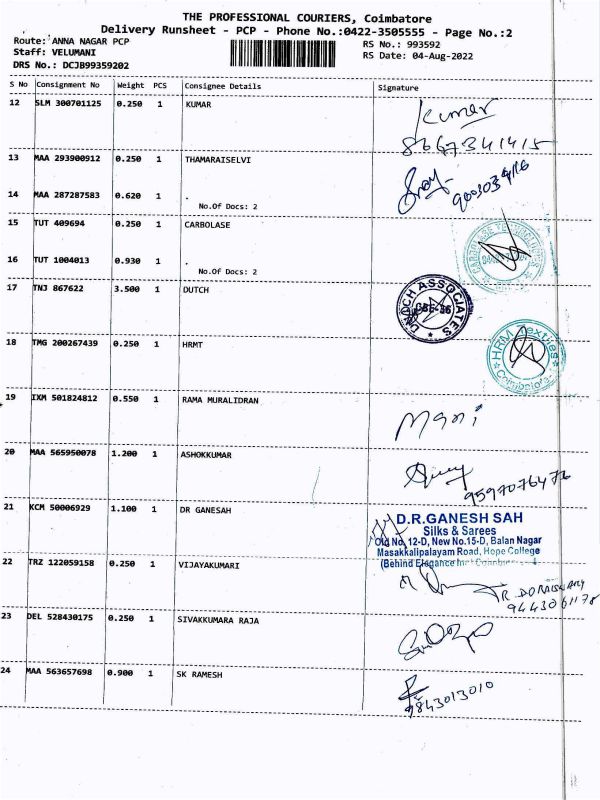 THE PROFESSIONAL COURIERS, Coimbatore
Delivery Runsheet - PCP - Phone No.:0422-3505555 - Page No.:2
Route: ANNA NAGAR PCP
RS No.: 993592
Staff: VELUMANI
RS Date: 04-Aug-2022
DRS No.: DCJB99359202
S No Consignment No Weight PCS Consignee Details Signature
12 SLM 300701125 0.250 1 KUMAR
Kumar
8667341415
13 MAA 293900912 0.250 1 THAMARAISELVI
14 MAA 287287583 0.620 1 .
No.Of Docs: 2
15 TUT 409694 0.250 1 CARBOLASE
16 TUT 1004013 0.930 1 .
No.Of Docs: 2
17 TNJ 867622 3.500 1 DUTCH
ASSOCIATES
18 TMG 200267439 0.250 1 HRMT
HRM Textiles
Coimbatore
19 IXM 501824812 0.550 1 RAMA MURALIDRAN
Mani
20 MAA 565950078 1.200 1 ASHOKKUMAR
9597076476
21 KCM 50006929 1.100 1 DR GANESAH
D.R.GANESH SAH
Silks & Sarees
Old No. 12-D, New No.15-D, Balan Nagar
Masakkalipalayam Road, Hope College
(Behind Elegance
22 TRZ 122059158 0.250 1 VIJAYAKUMARI
R DORAISWAMY
9443061178
23 DEL 528430175 0.250 1 SIVAKKUMARA RAJA
24 MAA 563657698 0.900 1 SK RAMESH
9843013010